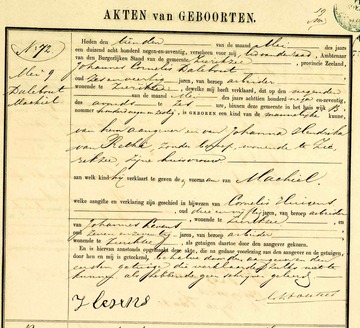 AKTEN van GEBOORTEN.
No 72.
Heden den tienden van de maand Mei des jaars
een duizend acht honderd negen-en-zeventig, verscheen voor mij Ambtenaar
van den Burgerlijken Stand van de gemeente Zierikzee, provincie Zeeland,
Mei 9
Johannes Cornelis Dalebout
oud jaren, van beroep arbeider
Dalebout
Machiel
wonende te Zierikzee, dewelke mij heeft verklaard, dat op den negenden
van de maand Mei des jaars achttien honderd negen-en-zeventig, des
avonds te zes ure, binnen deze gemeente in het huis wijk B,
nummer is GEBOREN een kind van de mannelijke kunne,
van hem aangever en van Johanna Hendrika
van zonder beroep, wonende te Zie-
rikzee, zijne huisvrouw
aan welk kind hij verklaart te geven de voornaam van Machiel.
welke aangifte en verklaring zijn geschied in bijwezen van Cornelis
oud jaren, van beroep arbeider
wonende te Zierikzee en
van Johannes
oud zeven en veertig jaren, van beroep arbeider
wonende te Zierikzee, als getuigen daartoe door den aangever gekozen.
En is hiervan aanstonds opgemaakt deze akte, die na gedane voorlezing aan den aangever en de getuigen,
door hen en mij is geteekend, behalve door den aangever en den
eersten getuige die verklaarden
als hebbende geen schrijven geleerd.